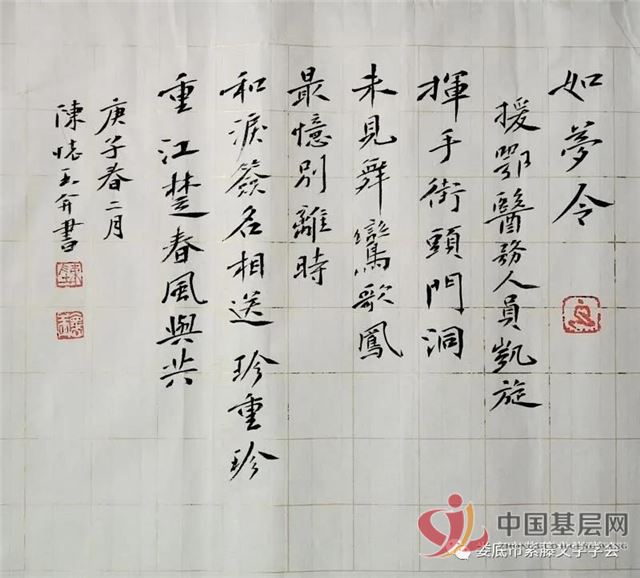 如夢令
援鄂醫務人員凱旋
揮手街頭門洞
未見舞鸞歌鳳
最憶別離時
和淚簽名相送 珍重珍
重江楚春風與共
庚子春二月
陳 书
中国基层网
娄底市紫藤文学学会